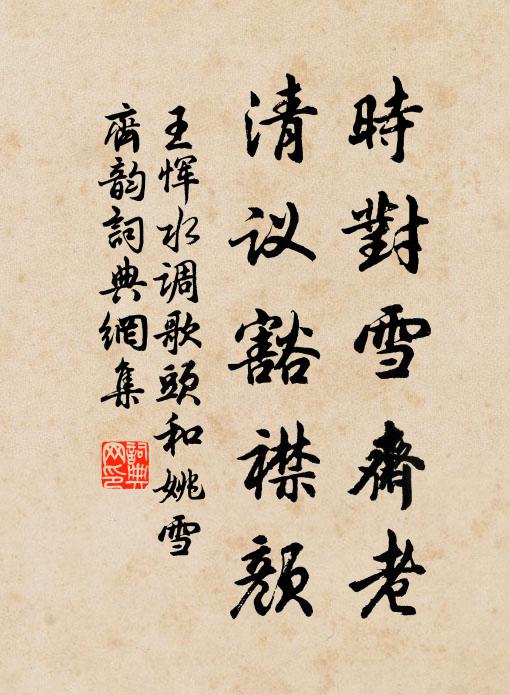 時對雪齋老
清议豁襟顔
王恽水调歌頭和姚雪
齊韵詞典網集
詞典
网印